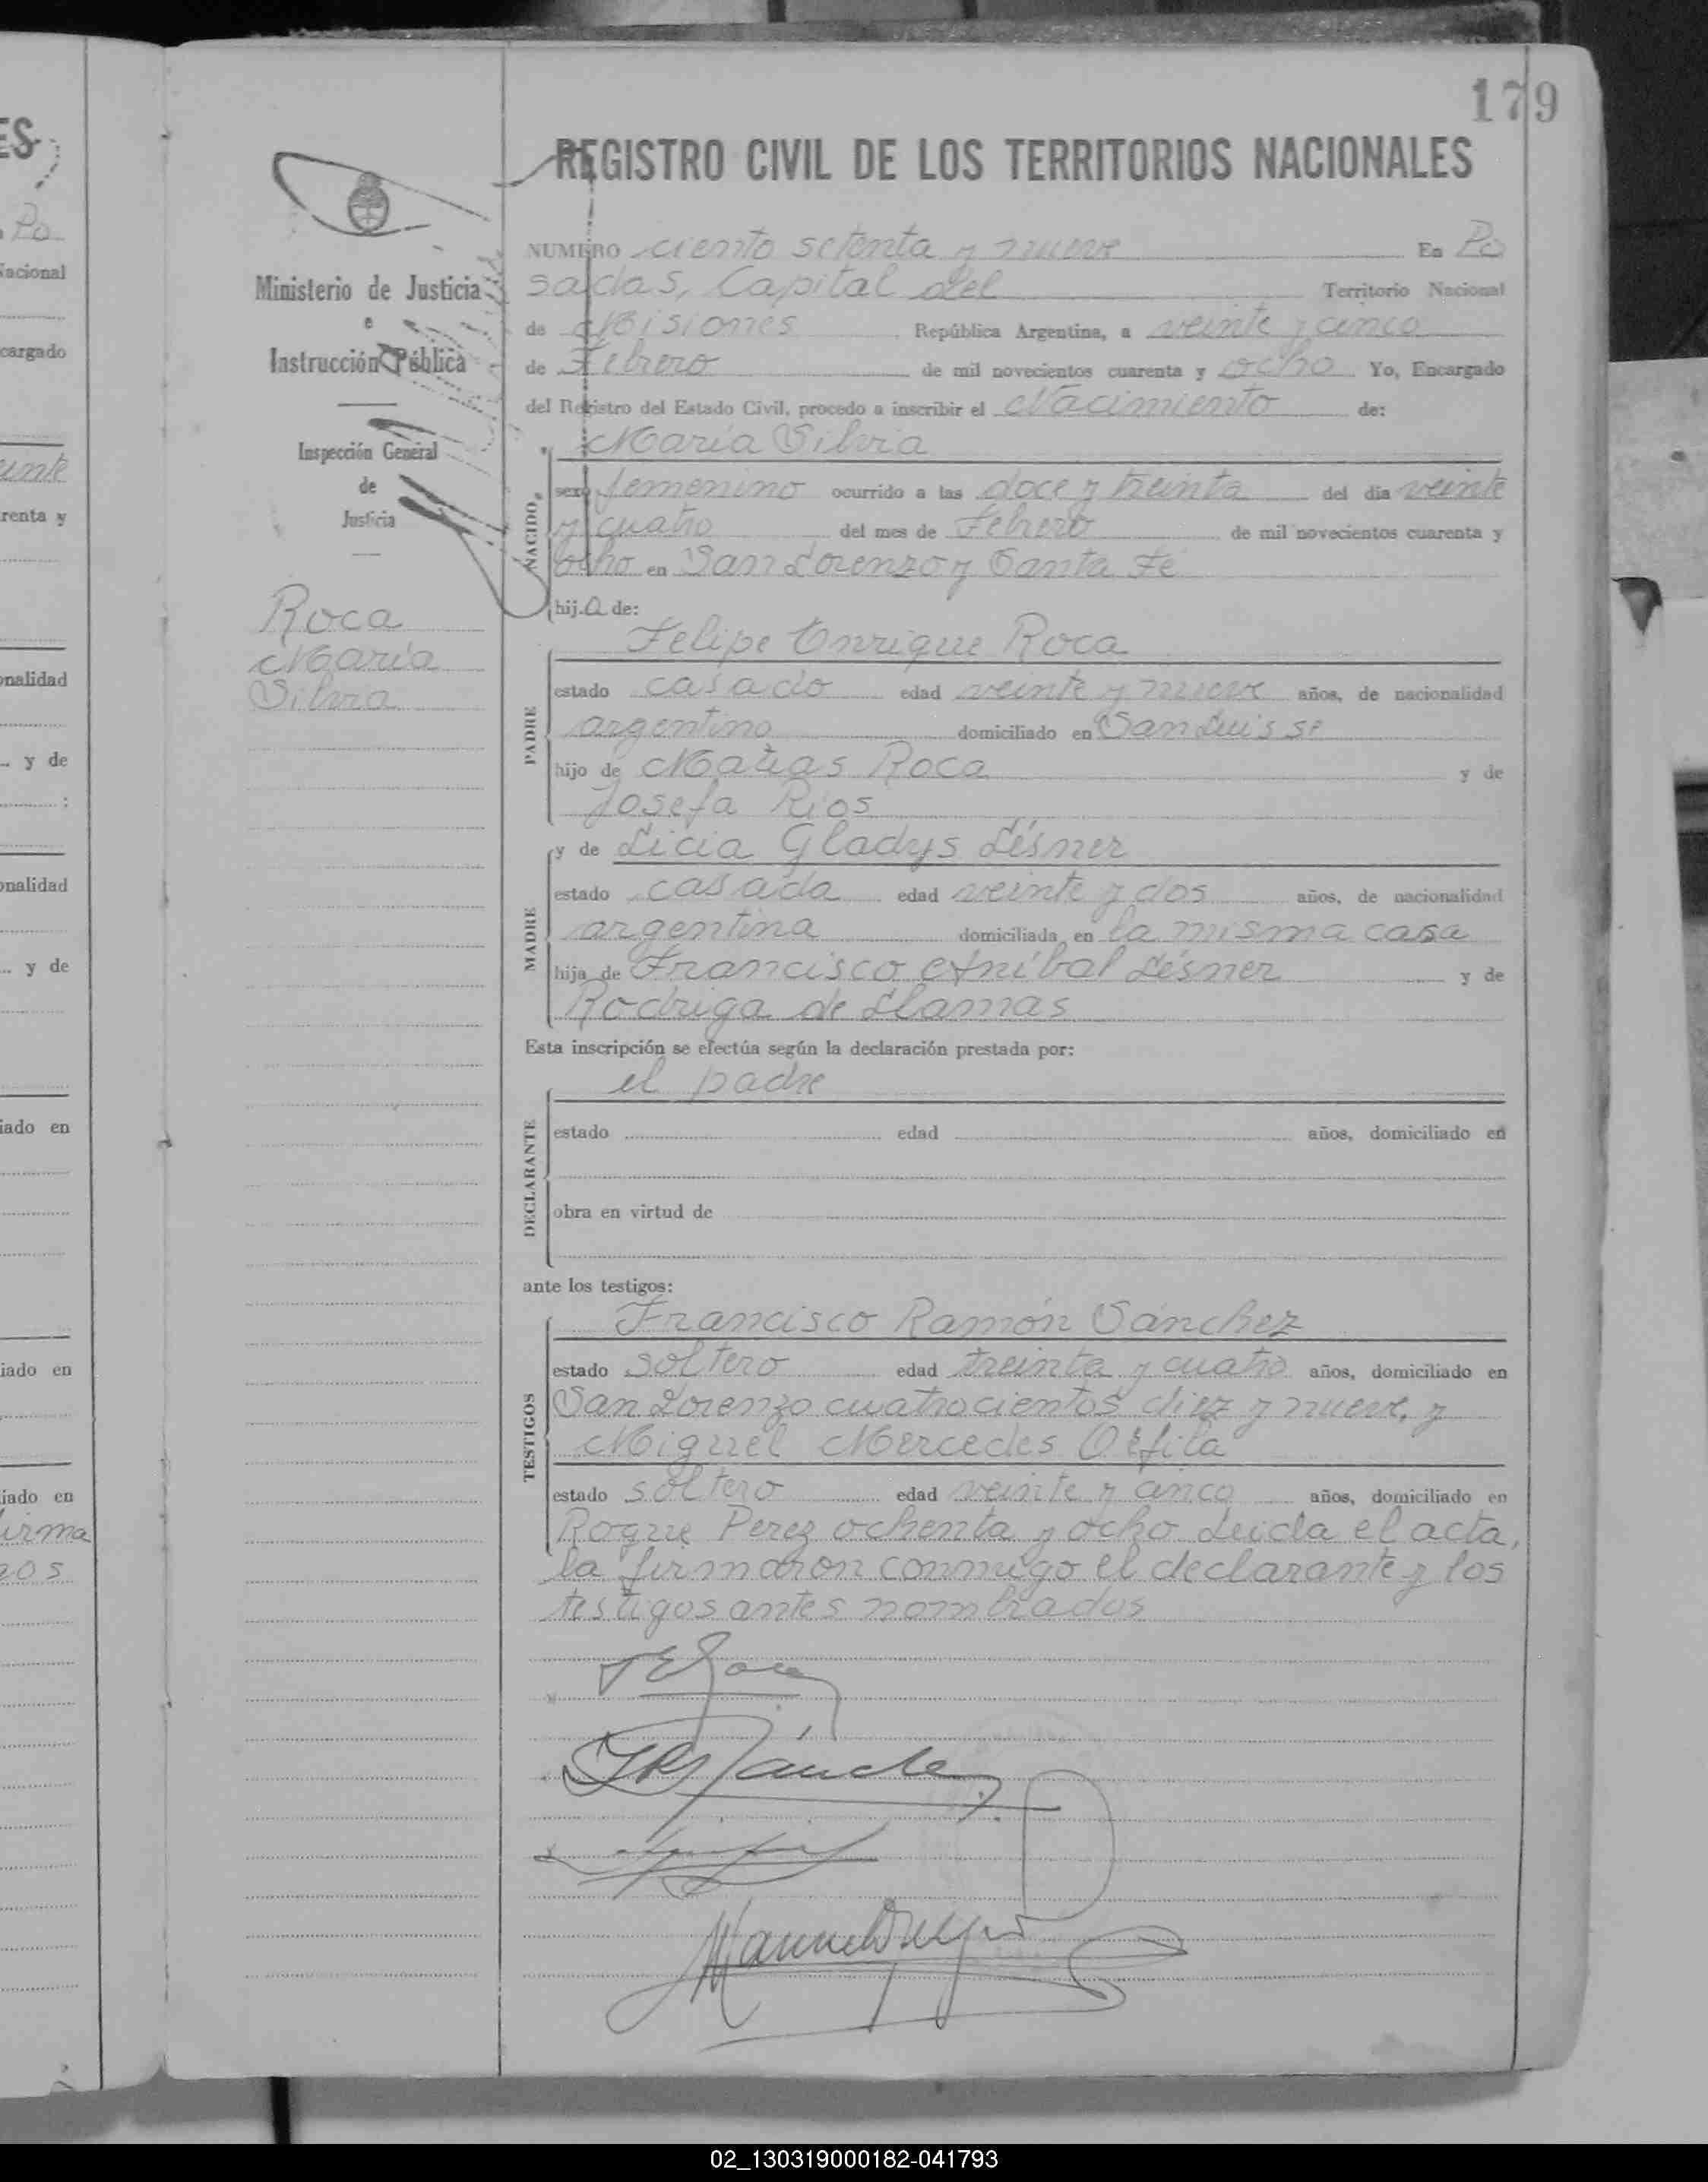 179
REGISTRO CIVIL DE LOS TERRITORIOS NACIONALES
NUMERO ciento setenta y nueve En Po
sadas, Capital del Territorio Nacional
de Misiones República Argentina, a veinte y cinco
de Febrero de mil novecientos cuarenta y ocho Yo, Encargado
del Registro del Estado Civil, procedo a inscribir el Nacimiento de:
NACIDO
María Silvia
sexo femenino ocurrido a las doce y treinta del dia veinte
y cuatro del mes de Febrero de mil novecientos cuarenta y
ocho en San Lorenzo y Santa Fe
hij.a de:
PADRE
Felipe Enrique Roca
estado casado edad veinte y nueve años, de nacionalidad
argentino domiciliado en San Luis
hijo de Matías Roca y de
Josefa Ríos
MADRE
y de Licia Gladys Lésner
estado casada edad veinte y dos años, de nacionalidad
argentina domiciliada en la misma casa
hija de Francisco Aníbal Lésner y de
Rodriga de Llamas
Esta inscripción se efectúa según la declaración prestada por:
DECLARANTE
el padre
estado edad años, domiciliado en
obra en virtud de
ante los testigos:
TESTIGOS
Francisco Ramón Sánchez
estado soltero edad treinta y cuatro años, domiciliado en
San Lorenzo cuatrocientos diez y nueve, y
Miguel Mercedes
estado soltero edad veinte y cinco años, domiciliado en
Roque Perez ochenta y ocho Leida el acta,
la firmaron conmigo el declarante y los
testigos antes nombrados
Ministerio de Justicia
e
Instrucción Pública
Inspección General
de
Justicia
Roca
María
Silvia
ES
Po
Nacional
cargado
renta y
onalidad
y de
onalidad
y de
iado en
iado en
iado en
irma
02_130319000182-041793